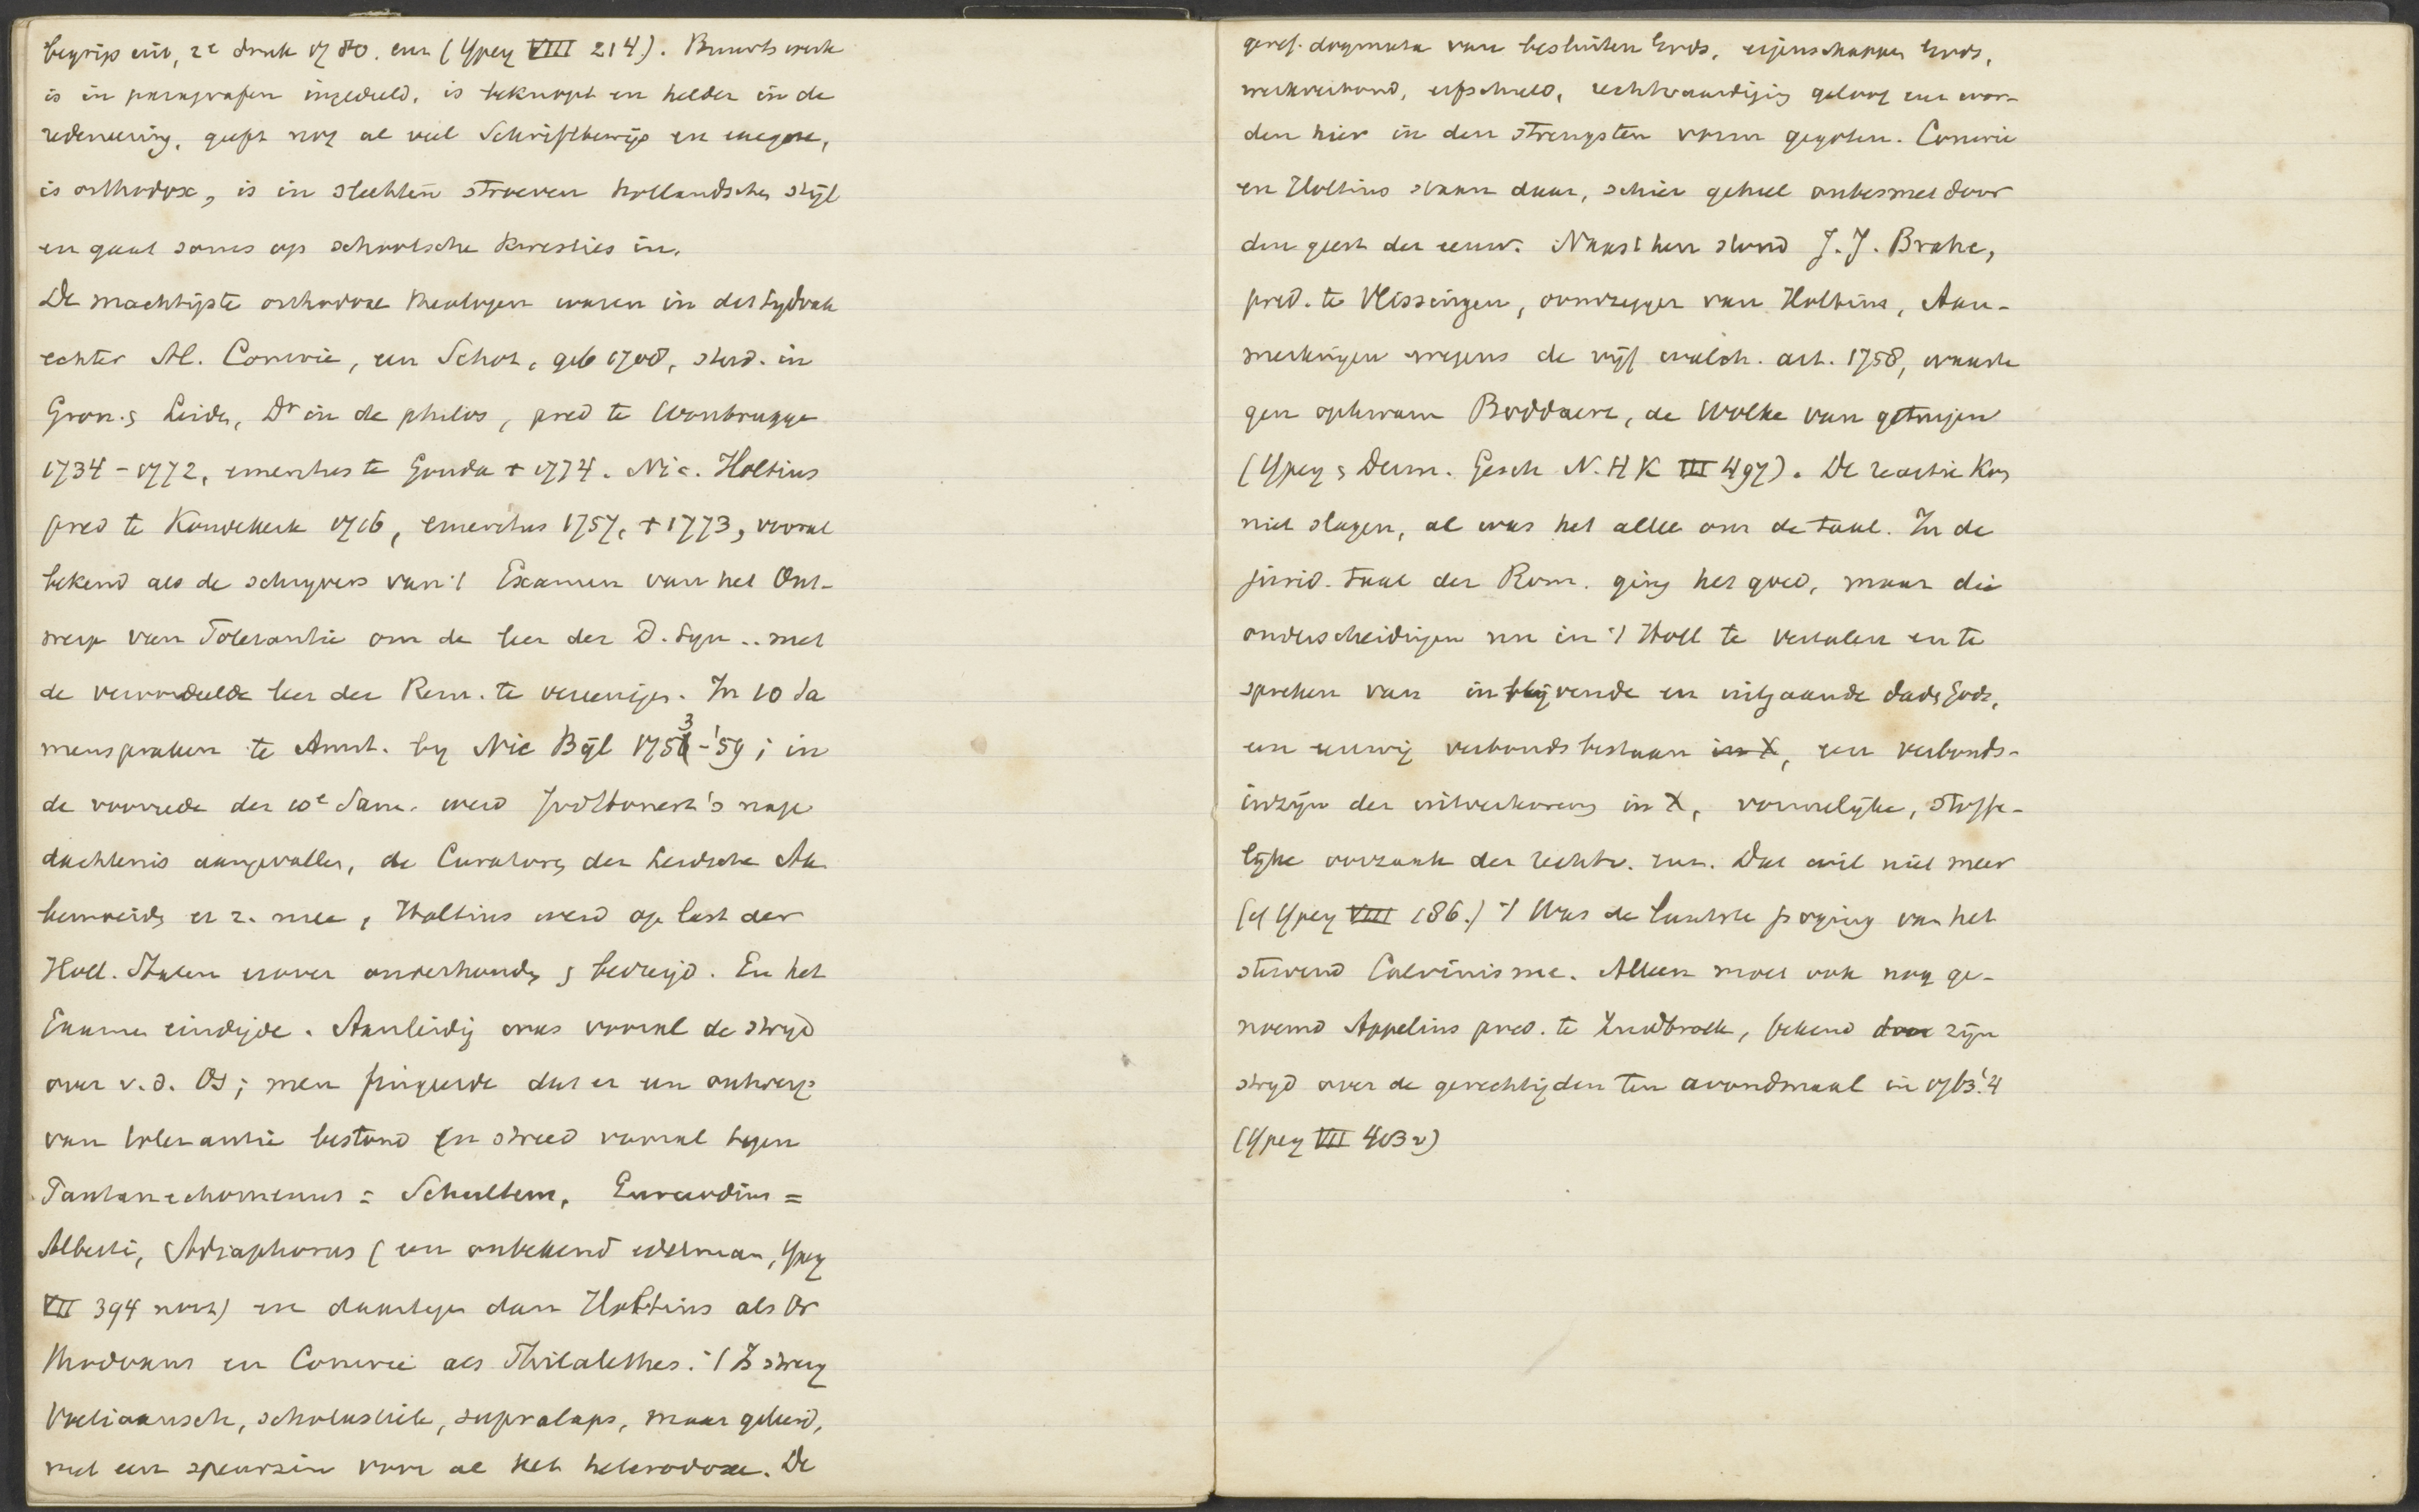 begrip uit, 2e druk 1780. enz (Ypey VIII 214). Buurts werk
is in paragrafen ingedeeld, is beknopt en helder in de
redeneering, geeft nog al veel Schriftbewijs en exegese,
is orthodox, is in slechten stroeven hollandschen stijl
en gaat soms op schoolsche kwesties in.
De machtigste orthodoxe theologen waren in dit tydvak
echter Al. Comrie, een Schot, geb 1708, stud. in
Gron. & Leiden, Dr in de philos, pred te Woubrugge
1734-1772, emeritus te Gouda + 1774. Nic. Holtius
pred te Koudekerk 1716, emeritus 1757, + 1773, vooral
bekend als de schryvers van 't Examen van het Ont-
werp van Tolerantie om de leer der D. Syn .. met
de veroordeelde leer der Rem. te vereenigen. In 10 Sa
menspraken te Amst. by Nic Bijl 1753-'59; in
de voorrede der 10e Sam. werd Jod Honert's nage
dachtenis aangevallen, de Curatoren der Leidsche Ak.
bemoeiden er z. mee, Holtius werd op last der
Holl. Staten erover onderhouden & bedreigd. En het
Examen eindigde. Aanleiding was vooral de stryd
over v.d. Os; men fingeerde dat er een ontwerp
van tolerantie bestond en streed vooral tegen
Pantanechomenus = Schultens, Euruodius =
Alberti, Adiaphorus (een onbekend edelman, Ypey
VII 394 noot) en daartegen dan Holtius als Or
thodoxus en Comrie als Philalethes. 't Is streng
Voetiaansch, scholastiek, supralaps, maar geleerd,
met een speurzin voor al het heterodoxe. De
geref. dogmata van besluiten Gods, eigenschappen Gods,
werkverbond, erfschuld, rechtvaardiging geloof enz wor-
den hier in den strengsten vorm gegoten. Comrie
en Holtius staan daar, schier geheel onbesmet door
den geest der eeuw. Naast hen stond J. J. Brahe,
pred. te Vlissingen, oomzegger van Holtius, Aan-
merkingen wegens de vijf walch. art. 1758, waarte
gen opkwam Boddaert, de Wolke van getuigen
(Ypey & Derm. Gesch N.H K III 497). De reactie kon
niet slagen, al was het alleen om de taal. In de
jurid. taal der Rom. ging het goed, maar die
onderscheidingen nu in 't Holl te vertalen en te
spreken van inblijvende en uitgaande daden Gods,
een eeuwig verbondsbestaan in X, een verbonds-
inzijn der uitverkorenen in X, vormelijke, stoffe-
lijke oorzaak der rechtv. enz. Dat wil niet meer
(cf Ypey VIII 186.) 't Was de laatste poging van het
stervend Calvinisme. Alleen moet ook nog ge-
noemd Appelius pred. te Zuidbroek, bekend door zijn
stryd over de gerechtigden ten avondmaal in 1763.'4
(Ypey VII 403 v)